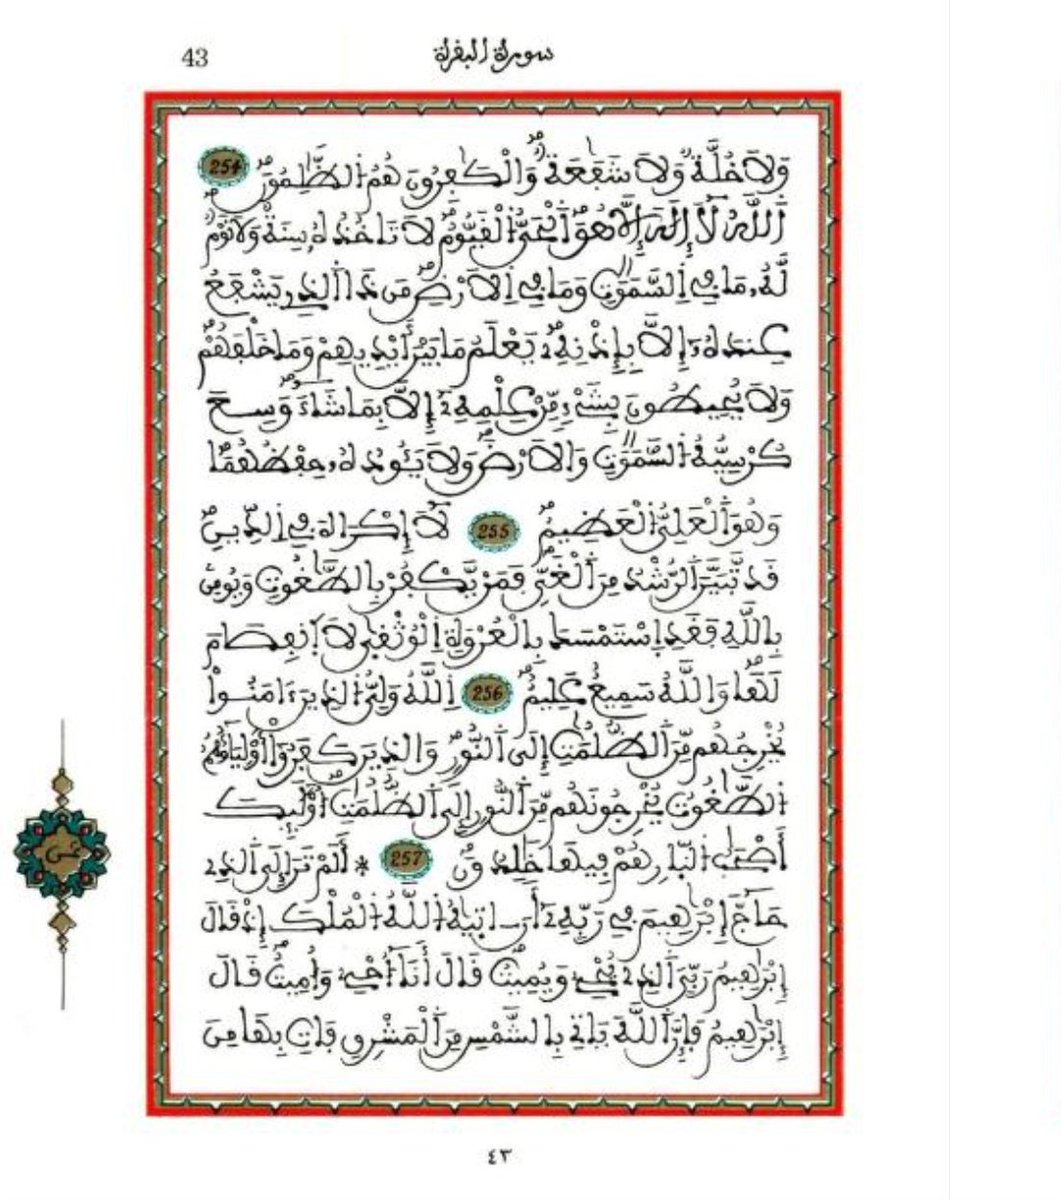 43
سورة البقرة
وَلَا خُلَّةٌ وَلَا شَفَٰعَةٌ وَالْكَٰفِرُونَ هُمُ الظَّٰلِمُونَ 254
اَللَّهُ لَا إِلَٰهَ إِلَّا هُوَ اَلْحَيُّ الْقَيُّومُ لَا تَاخُذُهُ سِنَةٌ وَلَا نَوْمٌ
لَّهُ مَا فِي اِلسَّمَٰوَٰتِ وَمَا فِي اِلَارْضِ مَن ذَا اَلذِي يَشْفَعُ
عِندَهُ إِلَّا بِإِذْنِهِ يَعْلَمُ مَا بَيْنَ أَيْدِيهِمْ وَمَا خَلْفَهُمْ
وَلَا يُحِيطُونَ بِشَيْءٍ مِّنْ عِلْمِهِ إِلَّا بِمَا شَاءَ وَسِعَ
كُرْسِيُّهُ السَّمَٰوَٰتِ وَالَارْضَ وَلَا يَـُٔودُهُ حِفْظُهُمَا
وَهُوَ اَلْعَلِيُّ الْعَظِيمُ 255 لَا إِكْرَاهَ فِي اِلدِّينِ
قَد تَّبَيَّنَ اَلرُّشْدُ مِنَ اَلْغَيِّ فَمَنْ يَّكْفُرْ بِالطَّٰغُوتِ وَيُومِنۢ
بِاللَّهِ فَقَدِ اِسْتَمْسَكَ بِالْعُرْوَةِ اِلْوُثْقَىٰ لَا اَنفِصَامَ
لَهَا وَاللَّهُ سَمِيعٌ عَلِيمٌ 256 اِللَّهُ وَلِيُّ الذِينَ ءَامَنُواْ
يُخْرِجُهُم مِّنَ اَلظُّلُمَٰتِ إِلَى اَلنُّورِ وَالذِينَ كَفَرُواْ أَوْلِيَاؤُهُمُ
الطَّٰغُوتُ يُخْرِجُونَهُم مِّنَ اَلنُّورِ إِلَى اَلظُّلُمَٰتِ أُوْلَٰئِكَ
أَصْحَٰبُ النَّارِ هُمْ فِيهَا خَٰلِدُونَ 257 * أَلَمْ تَرَ إِلَى اَلذِي
حَاجَّ إِبْرَٰهِيمَ فِي رَبِّهِ أَنَ اتَيٰهُ اللَّهُ الْمُلْكَ إِذْ قَالَ
إِبْرَٰهِيمُ رَبِّيَ اَلذِي يُحْيِي وَيُمِيتُ قَالَ أَنَا أُحْيِي وَأُمِيتُ قَالَ
إِبْرَٰهِيمُ فَإِنَّ اَللَّهَ يَاتِي بِالشَّمْسِ مِنَ اَلْمَشْرِقِ فَاتِ بِهَا مِنَ
٤٣